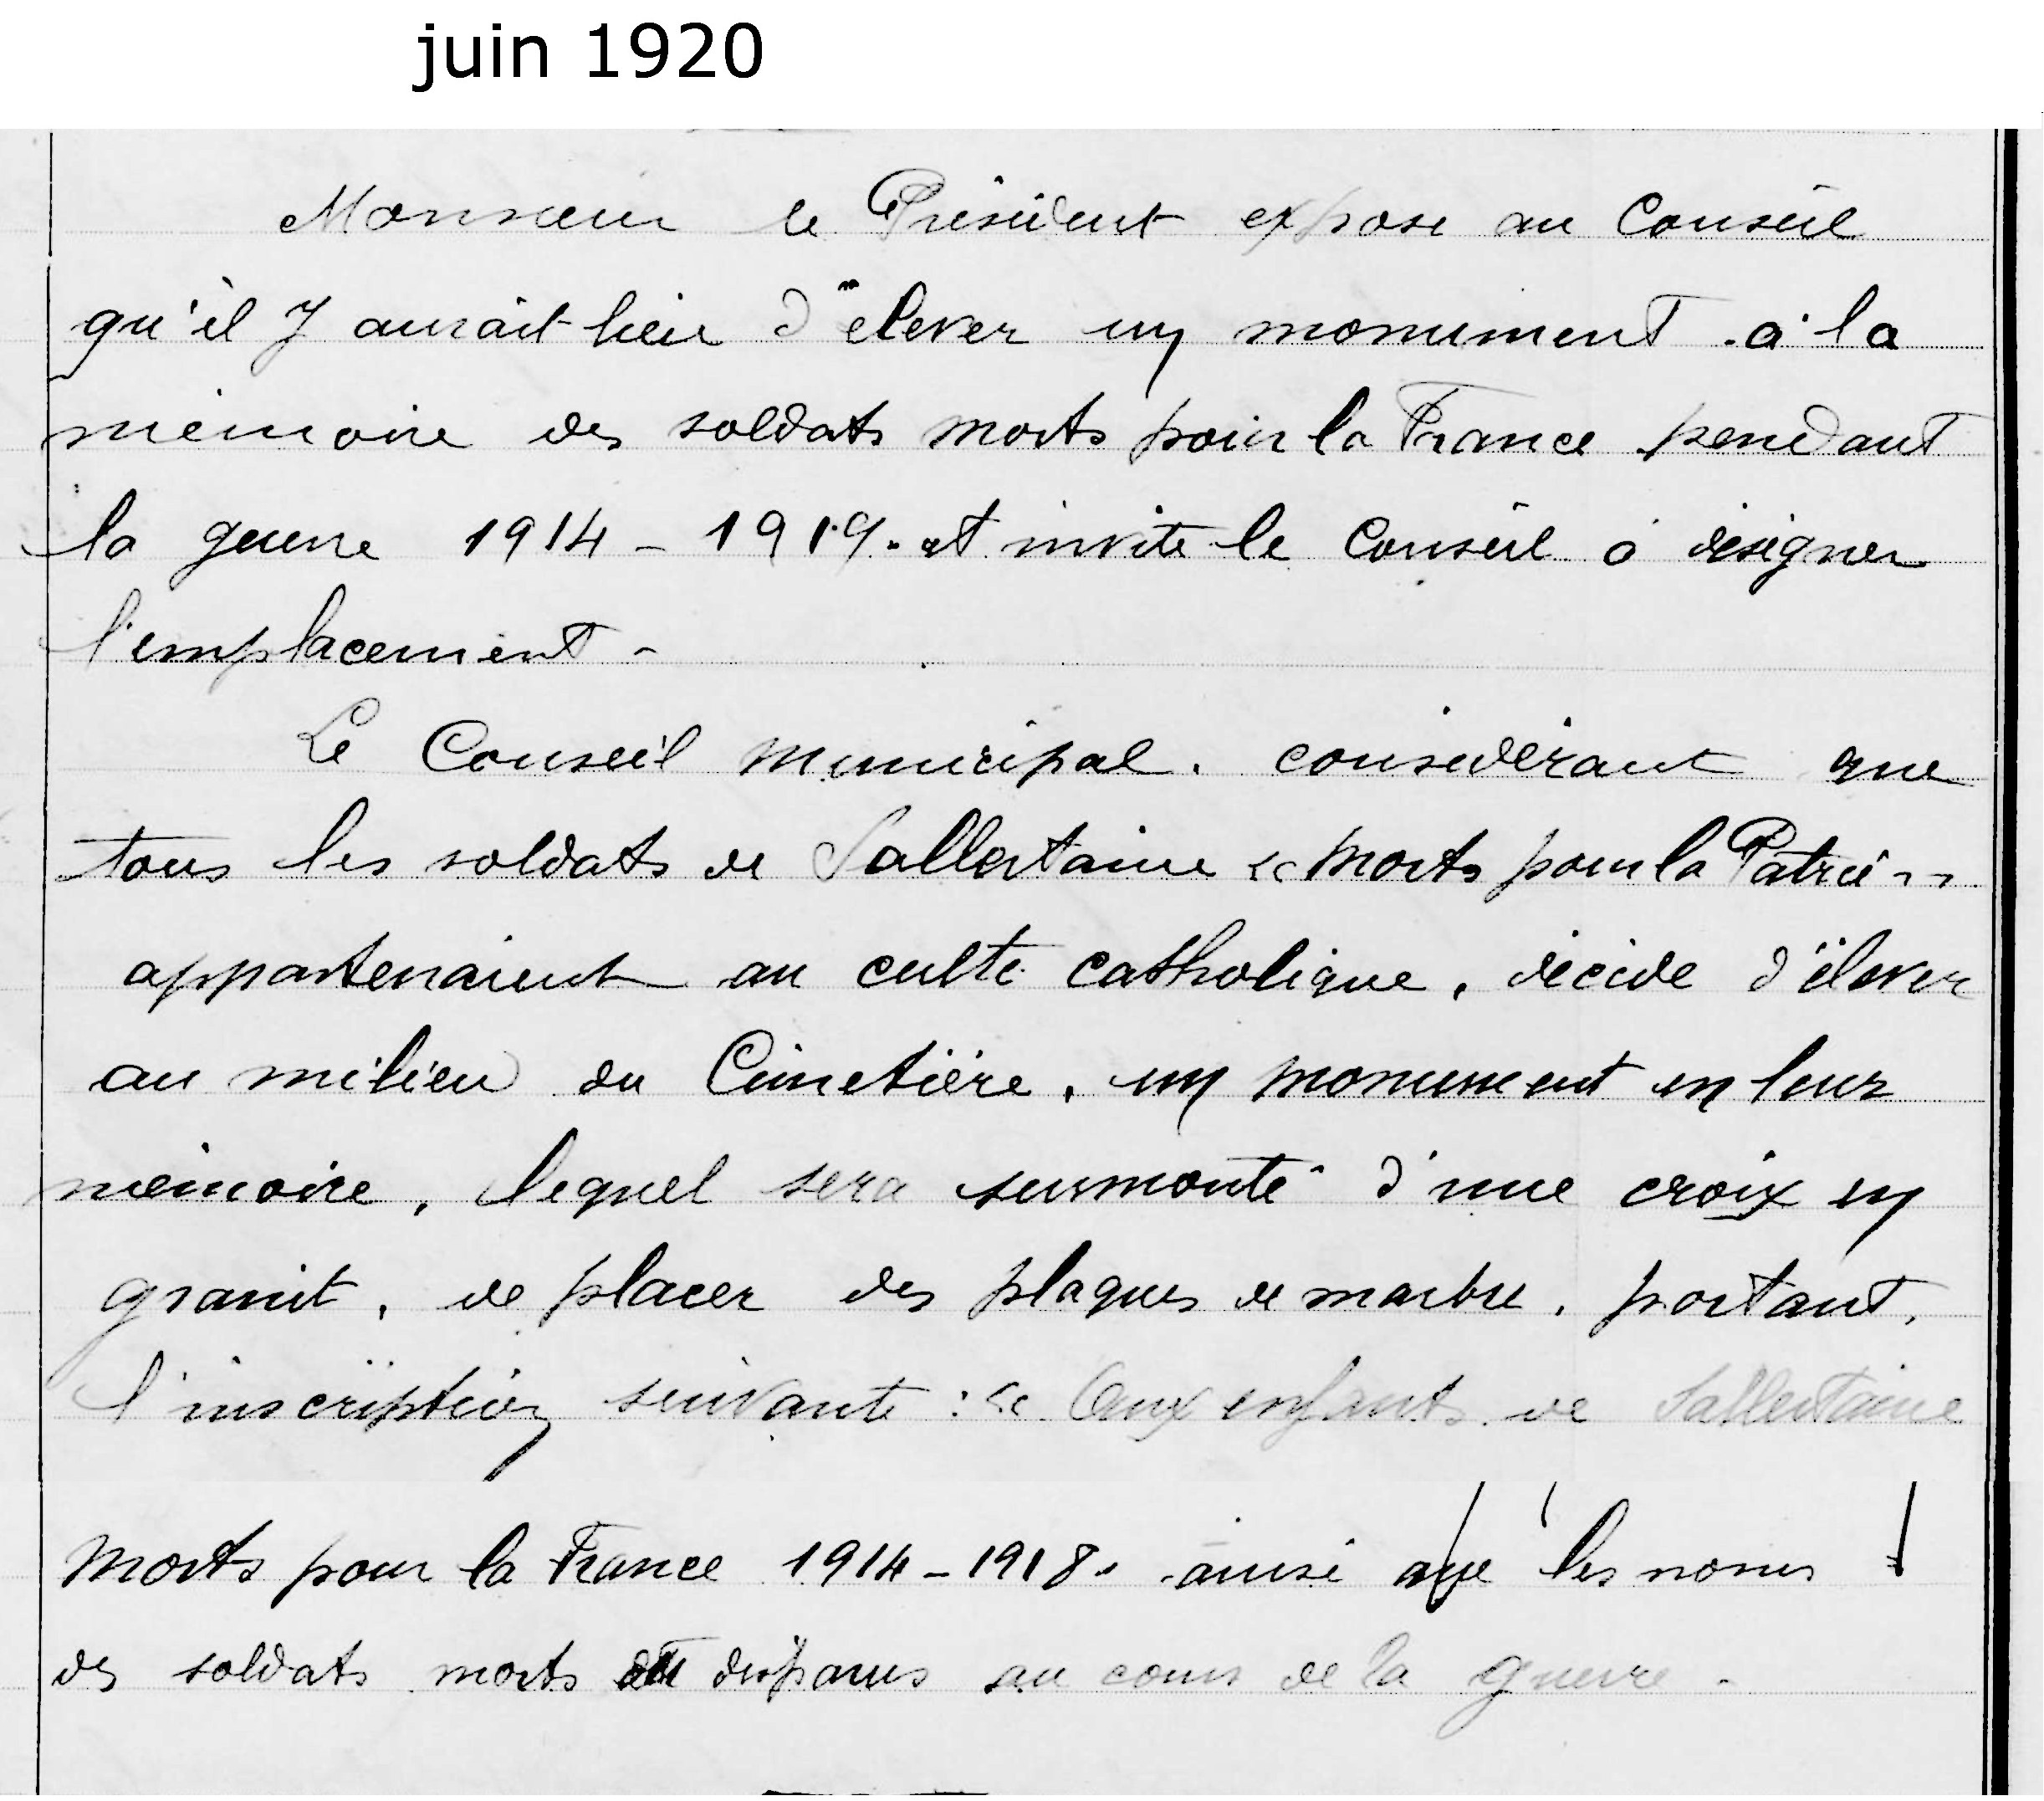 juin 1920
Monsieur le Président expose au Conseil
qu'il y aurait lieu d'élever un monument à la
mémoire des soldats morts pour la France pendant
la guerre 1914 - 1919. et invite le Conseil à désigner
l'emplacement -
Le Conseil Municipal. considérant que
tous les soldats de Sallertaine « Morts pour la Patrie »
appartenaient au culte catholique, décide d'élever
au milieu du Cimetière, un monument en leur
mémoire, lequel sera surmonté d'une croix en
granit, de placer des plaques de marbre, portant,
l'inscription suivante : « Aux enfants de Sallertaine
Morts pour la France 1914 - 1918. ainsi que les noms
des soldats morts et disparus au cours de la guerre -